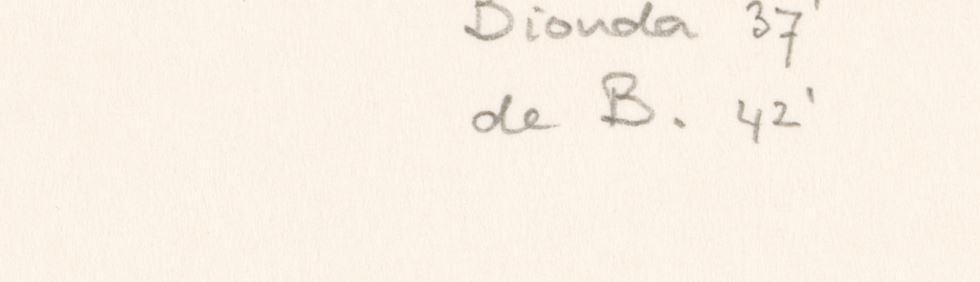 Dionda 37'
de B. 42'